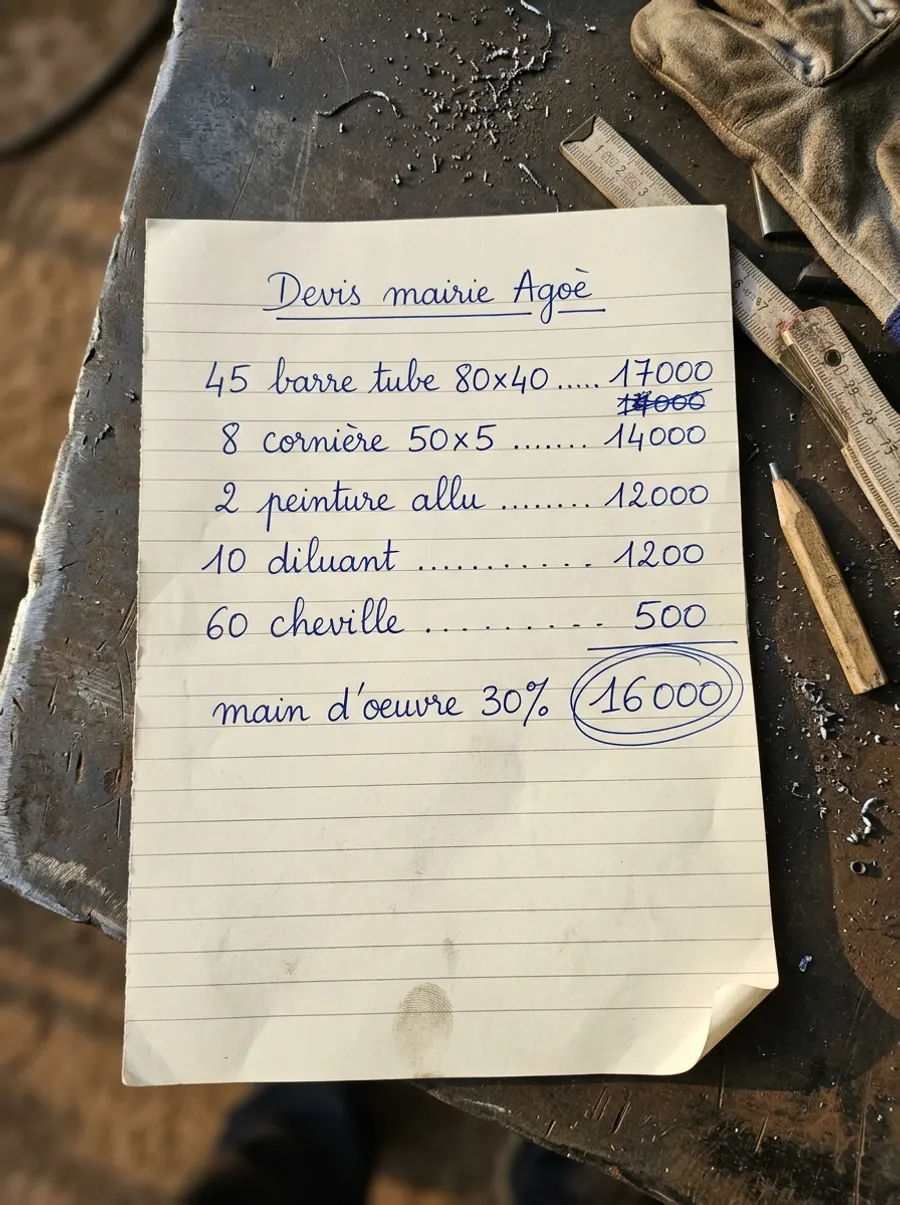 Devis mairie Agoè
45 barre tube 80x40 ..... 17000
14000
8 cornière 50x5 ....... 14000
2 peinture allu ........ 12000
10 diluant ........... 1200
60 cheville ......... 500
main d'oeuvre 30% 16000